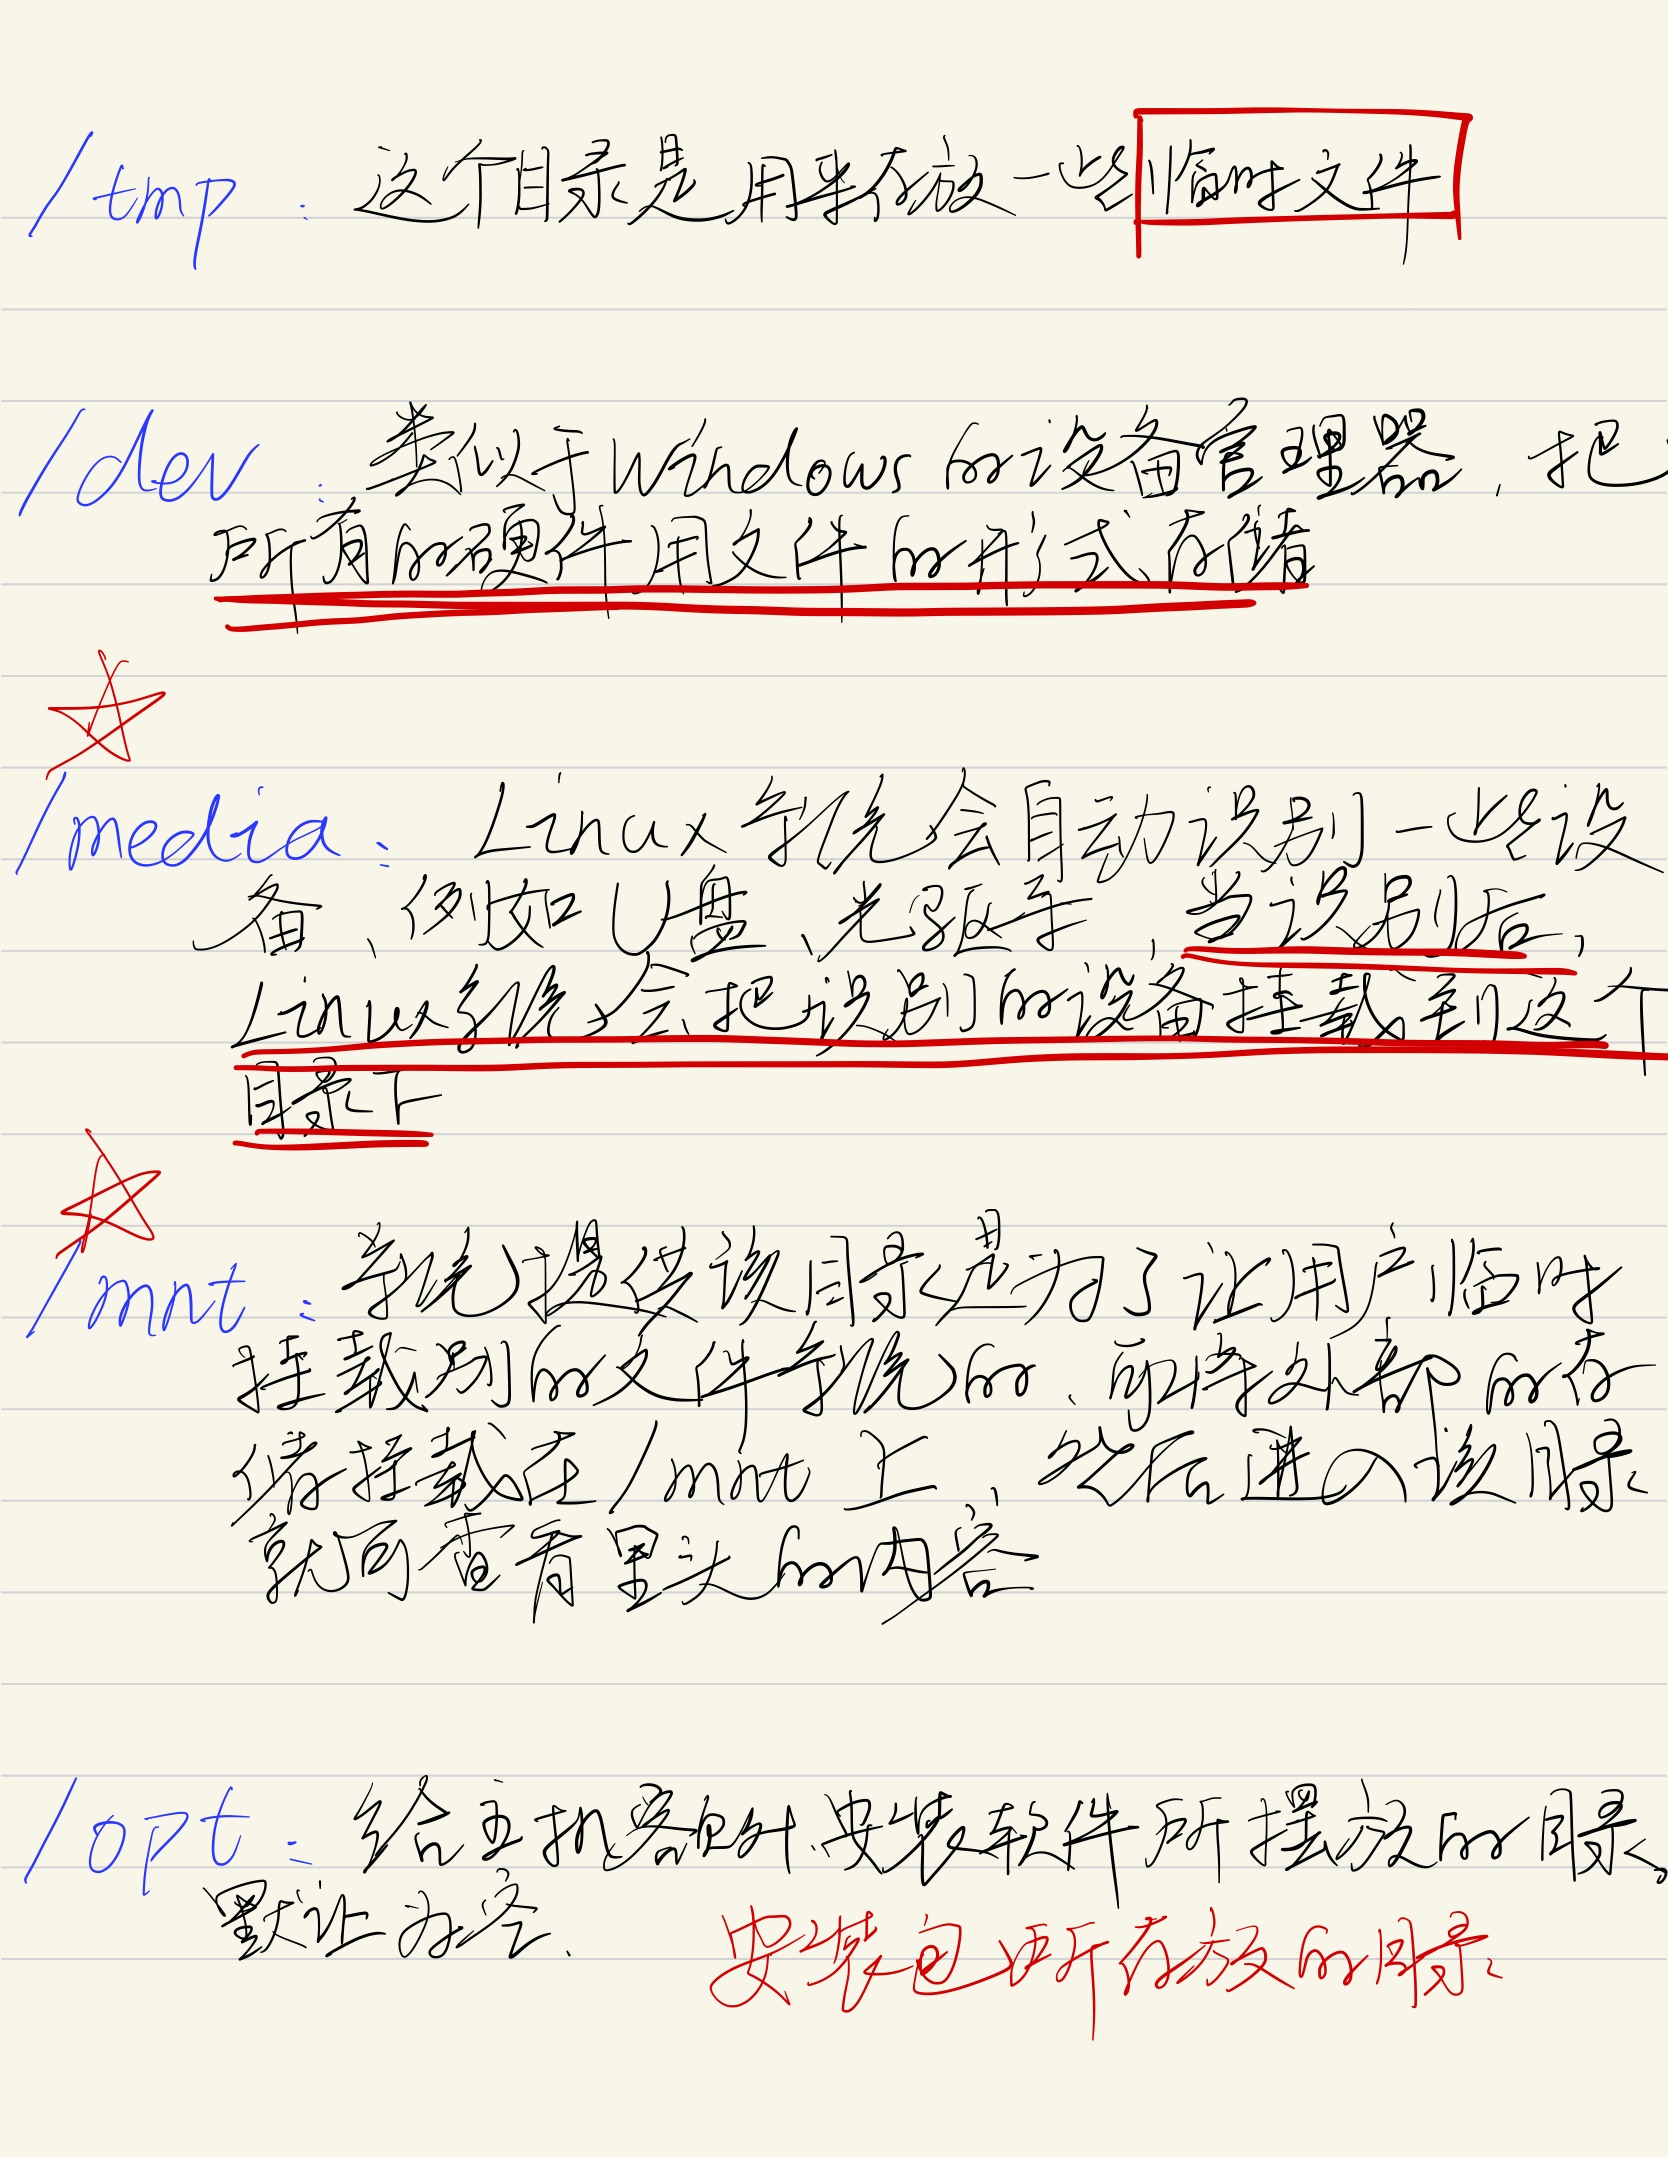 /tmp : 这个目录是用来存放一些临时文件
/dev : 类似于Windows的设备管理器，把
所有的硬件用文件的形式存储
/media : Linux系统会自动识别一些设
备、例如U盘、光驱等，当识别后，
Linux系统会把识别的设备挂载到这个
目录下
/mnt : 系统提供该目录是为了让用户临时
挂载别的文件系统的、可将外部的存
储挂载在/mnt上，然后进入该目录
就可查看里头的内容
/opt : 给主机额外安装软件所摆放的目录。
默认为空.
安装包所存放的目录